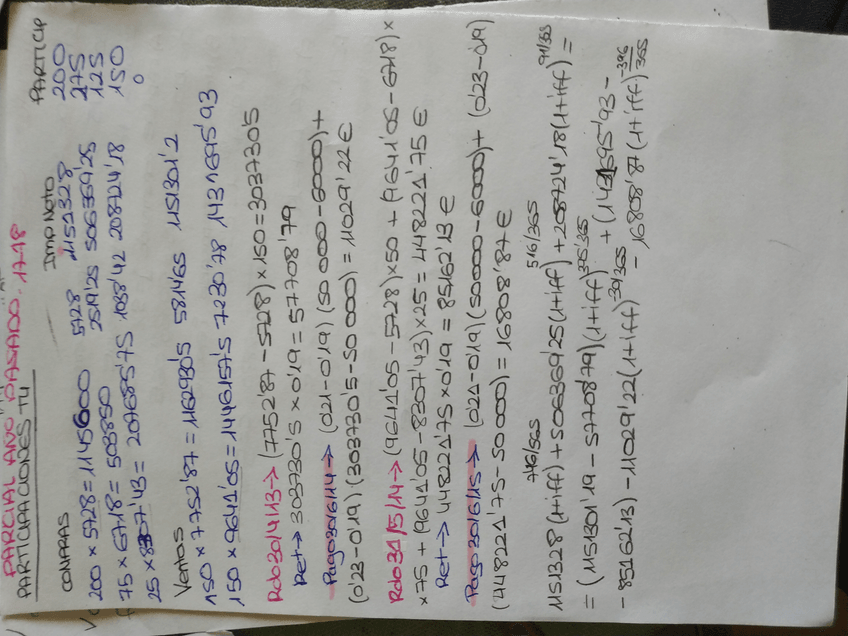 PARCIAL AÑO PASADO. 17-18
PARTICIPACIONES T4
COMPRAS Imp Neto PARTICIP
200 x 5728 = 1145600 5728 1151328 200
75 x 6718 = 503850 2519'25 506369'25 275
25 x 8307'43 = 207685'75 1038'42 208724'18 125
150
0
Ventas
150 x 7752'87 = 1162930'5 5814'65 1151301'2
150 x 9641'05 = 1446157'5 7230'78 1431695'93
Rdo 30/4/13 → (7752'87 - 5728) x 150 = 303730'5
Ret → 303730'5 x 0'19 = 57708'79
Pago 30/6/14 → (0'21-0'19) (50 000-6000) +
(0'23-0'19) (303730'5-50 000) = 11029'22 €
Rdo 31/5/14 → (9641'05 - 5728) x 50 + (9641'05 - 6718) x
x 75 + (9641'05 - 8307'43) x 25 = 448221'75 €
Ret → 448221'75 x 0'19 = 85162'13 €
Pago 30/6/15 → (0'21-0'19) (50000-6000) + (0'23-0'19)
(448221'75-50000) = 16808'87 €
1151328 (1+iff)^716/365 + 506369'25 (1+iff)^516/365 + 208724'18 (1+iff)^91/365 =
= (1151301'19 - 57708'79) (1+iff)^395/365 + (1431695'93 -
- 85162'13) - 11029'22 (1+iff)^-30/365 - 16808'87 (1+iff)^-396/365